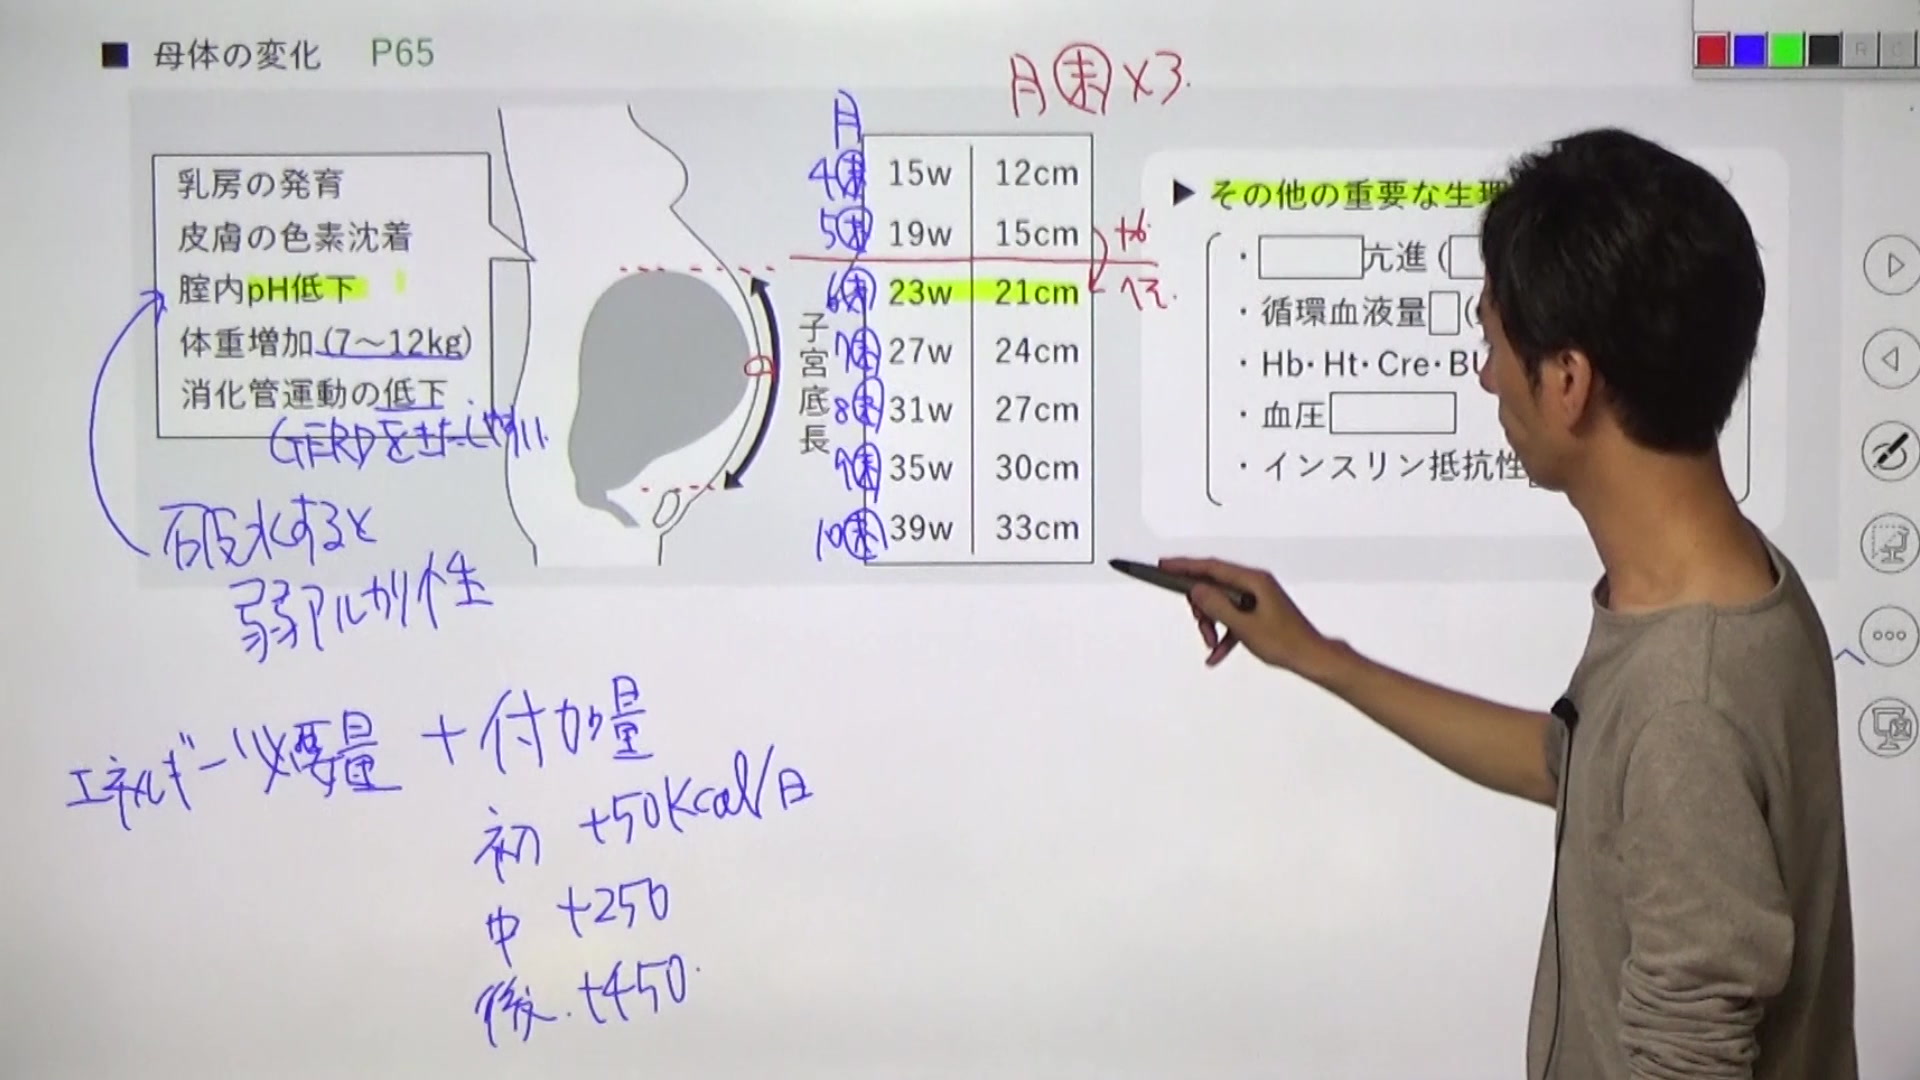 ■ 母体の変化 P65
月末×3.
乳房の発育
皮膚の色素沈着
膣内pH低下
体重増加(7〜12kg)
消化管運動の低下
GERDをきたしやすい.
破水すると
弱アルカリ性
子宮底長
月
4末 15w 12cm
5末 19w 15cm
+6
6末 23w 21cm
へそ.
7末 27w 24cm
8末 31w 27cm
9末 35w 30cm
10末 39w 33cm
▶ その他の重要な生理
・ 亢進 (
・循環血液量 (
・Hb・Ht・Cre・BU
・血圧
・インスリン抵抗性
エネルギー必要量 + 付加量
初 +50Kcal/日
中 +250
後. +450.